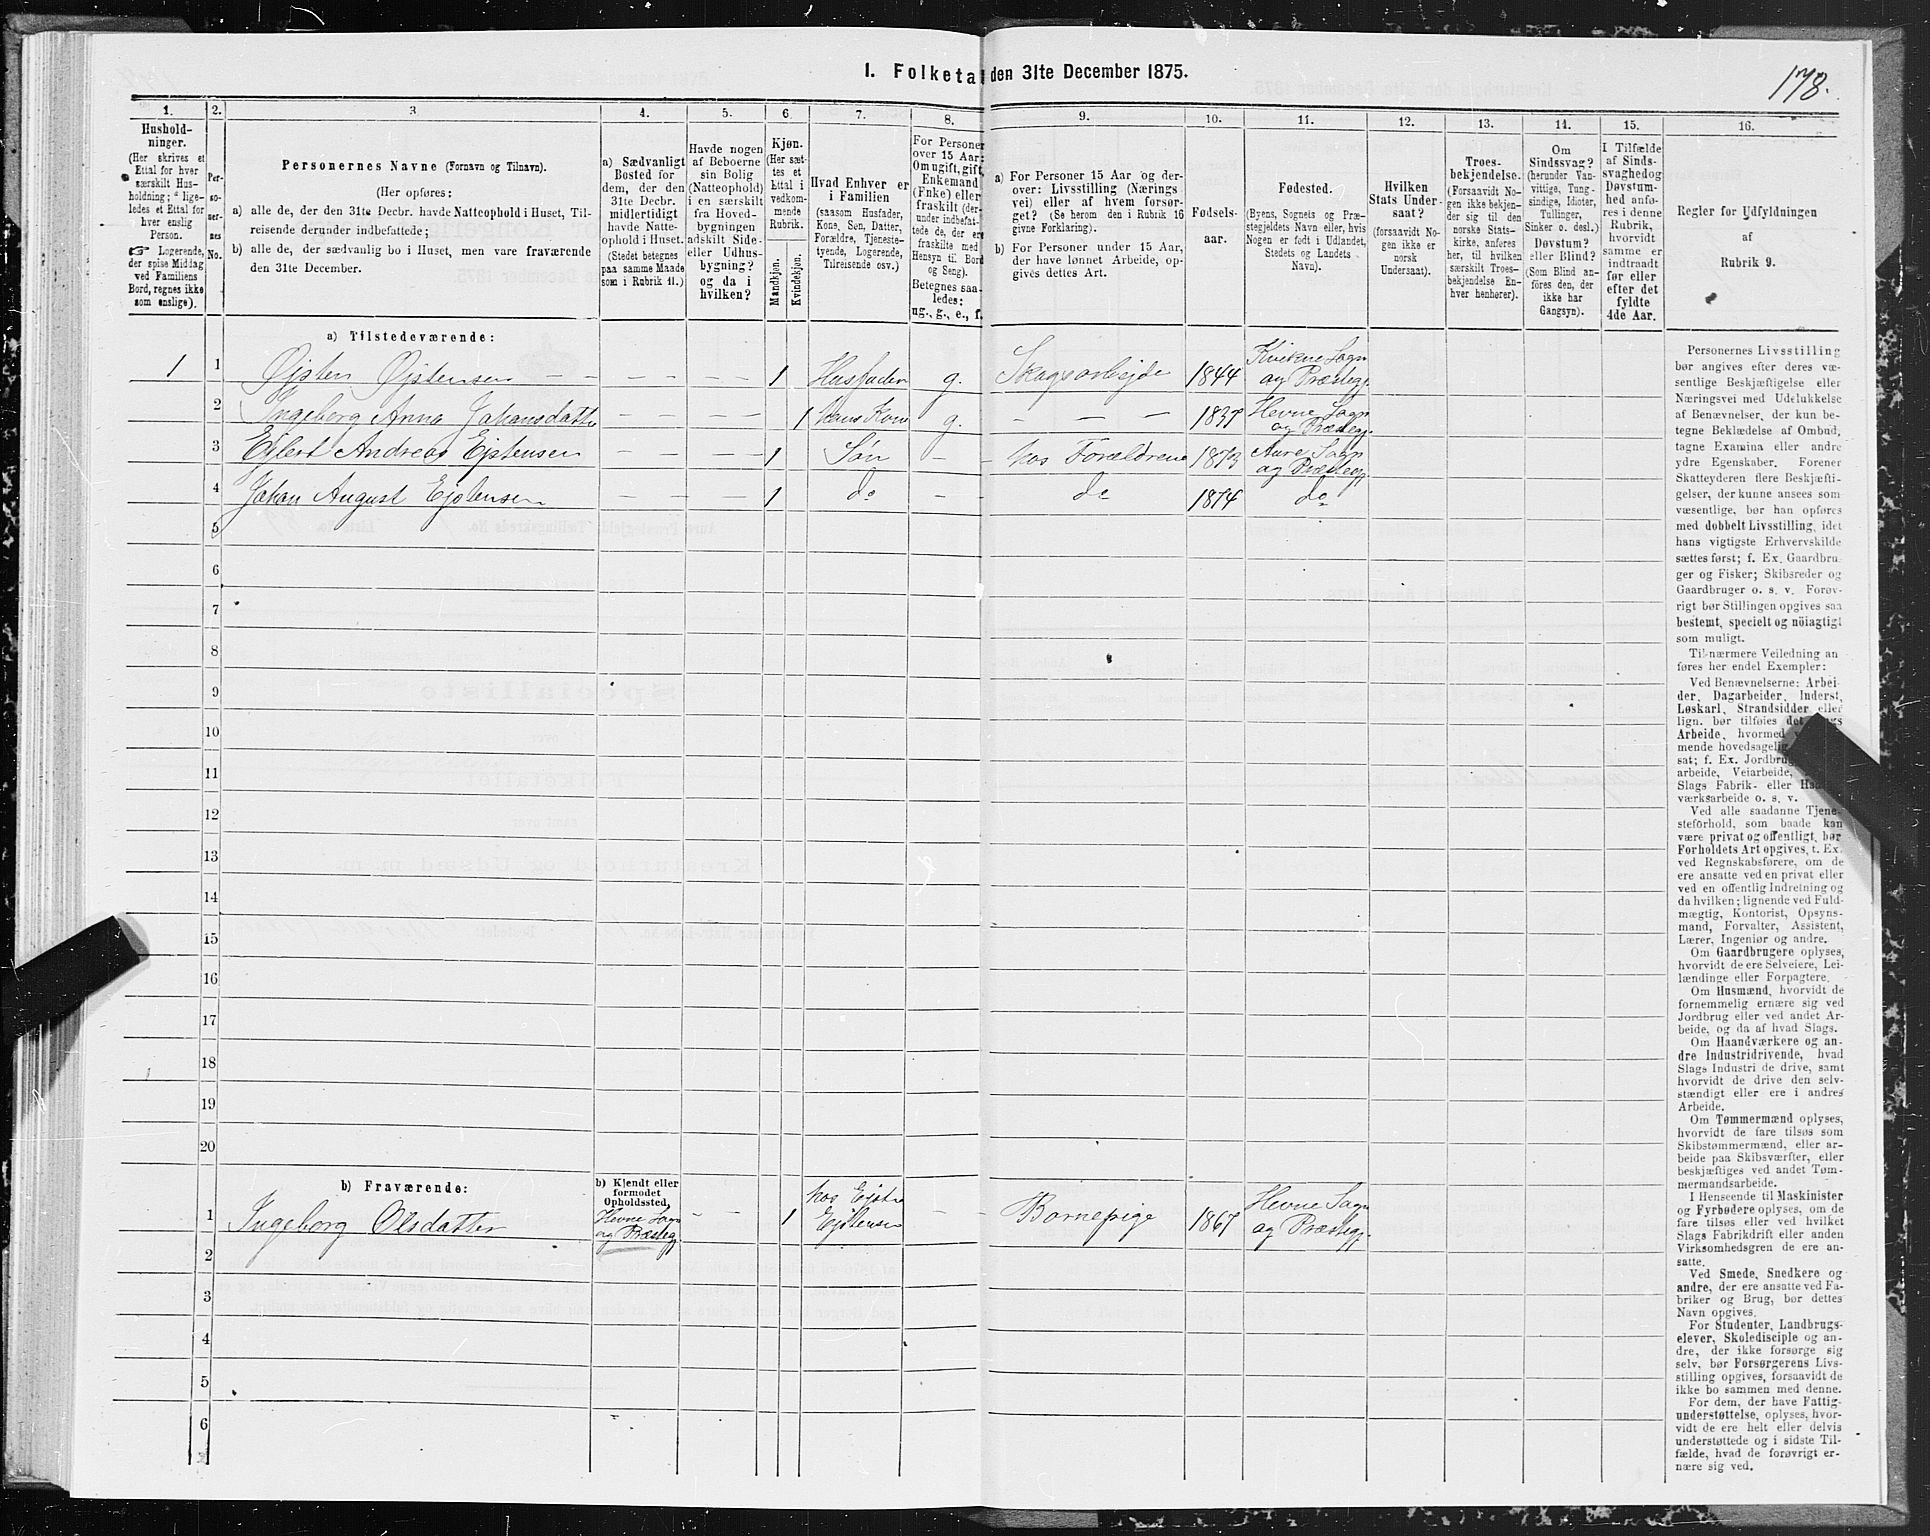 178.
I. Folketa den 31te December 1875.
1.
2.
3
4.
5.
6.
7.
8.
9.
10.
11.
12.
13.
14.
15.
16.
Hushold-
ninger.
(Her skrives et
Ettal for hver
særskilt Hus-
holdning; lige-
ledes et Ettal for
hver enslig
Person.
Logerende,
der spise Middag
ved Familiens
Bord, regnes ikke
som enslige).
Per-
so-
ner-
nes
No.
Personernes Navne (Fornavn og Tilnavn).
(Her opføres:
a) alle de, der den 31te Decbr. havde Natteophold i Huset, Til-
reisende derunder indbefattede;
b) alle de, der sædvanlig bo i Huset, men vare fraværende
den 31te December.
a) Sædvanligt
Bosted for
dem, der den
31te Decbr.
midlertidigt
havde Natte-
ophold i Huset.
(Stedet betegnes
paa samme Maade
som i Rubrik 11.)
Havde nogen
af Beboerne
sin Bolig
(Natteophold)
i en særskilt
fra Hoved-
bygningen
adskilt Side-
eller Udhus-
bygning?
og da i
hvilken?
Kjøn.
(Her sæt-
tes et
Ettal i
vedkom-
mende
Rubrik.
Mandkjøn.
Kvindekjøn.
Hvad Enhver er
i Familien
(saasom Husfader,
Kone, Søn, Datter,
Forældre, Tjeneste-
tyende, Logerende,
Tilreisende osv.)
For Personer
over 15 Aar:
Om ugift, gift,
Enkemand
(Enke) eller
fraskilt (der-
under indbefat-
tede de, der ere
fraskilte med
Hensyn til Bord
og Seng).
Betegnes saa-
ledes:
ug., g., e., f.
a) For Personer 15 Aar og der-
over: Livsstilling (Nærings
vei) eller af hvem forsør-
get? (Se herom den i Rubrik 16
givne Forklaring).
b) For Personer under 15 Aar,
de have lønnet Arbeide, op-
gives dettes Art.
Fødsels-
aar.
Fødested.
(Byens, Sognets og Præ-
stegjeldets Navn eller, hvis
Nogen er født i Udlandet,
Stedets og Landets
Navn).
Hvilken
Stats Under-
saat?
(forsaavidt No-
gen ikke er
norsk
Undersaat).
Troes-
bekjendelse.
(Forsaavidt No-
gen ikke bekjen-
der sig til den
norske Stats-
kirke, anføres
her, til hvilken
særskilt Troes-
bekjendelse En-
hver henhører).
Om
Sindssvag?
(herunder Van-
vittige, Tung-
sindige, Idioter,
Tullinger,
Sinker o. desl.)
Døvstum?
eller Blind?
(Som Blind an-
føres den, der
ikke har
Gangsyn).
I Tilfælde
af Sinds-
svaghed og
Døvstum-
hed anfø-
res i denne
Rubrik,
hvorvidt
samme er
indtraadt
før eller
efter det
fyldte
4de Aar.
Regler for Udfyldningen
af
Rubrik 9.
a) Tilstedeværende:
1 1 Øjsten Øjstensen — — — — 1 Husfader g. Skogsarbejde 1844 Kvikne Sogn og Præstegj.
2 Ingeborg Anna Johansdatter — — — — 1 hans Kone g. — — — 1837 Hevne Sogn og Præstegj.
3 Ejlert Andreas Ejstensen — — — — 1 Søn — — hos Forældrene 1873 Aure Sogn og Præstegj.
4 Johan August Ejstensen — — — — 1 do — — do 1874 do
5
6
7
8
9
10
11
12
13
14
15
16
17
18
19
20
b) Fraværende:
b) Kjendt eller
formodet
Opholdssted,
1 Ingeborg Olsdatter Hevne Sogn og Præstegj. — — 1 hos Ejste Ejstensen — — Barnepige 1867 Hevne Sogn og Præstegj.
2
3
4
5
6
Personernes Livsstilling
bør angives efter deres væ-
sentlige Beskjæftigelse eller
Næringsvei med Udelukkelse
af Benævnelser, der kun be-
tegne Beklædelse af Ombud,
tagne Examina eller andre
ydre Egenskaber. Forener
Skatteyderen flere Beskjæfti-
gelser, der kunne ansees som
væsentlige, bør han opføres
med dobbelt Livsstilling, idet
hans vigtigste Erhvervskilde
sættes først; f. Ex. Gaardbru-
ger og Fisker; Skibsreder og
Gaardbruger o. s. v. Forøv-
rigt bør Stillingen opgives saa
bestemt, specielt og nöiagtigt
som muligt.
Til nærmere Veiledning an
føres her endel Exempler:
Ved Benævnelserne: Arbei-
der, Dagarbeider, Inderst,
Løskarl, Strandsidder eller
lign. bør tilføies det
Arbeide, hvormed
mende hovedsagelig
sat; f. Ex. Jordbrug
arbeide, Veiarbeide,
Slags Fabrik- eller
værksarbeide o. s. v.
Ved alle saadanne Tjene-
steforhold, som baade kan
være privat og offentligt, bør
Forholdets Art opgives, t. Ex.
ved Regnskabsførere, om de
ere ansatte ved en privat eller
ved en offentlig Indretning og
da hvilken; lignende ved Fuld-
mægtig, Kontorist, Opsyns-
mand, Forvalter, Assistent,
Lærer, Ingeniør og andre.
Om Gaardbrugere oplyses,
hvorvidt de ere Selveiere, Lei-
lændinge eller Forpagtere.
Om Husmænd, hvorvidt de
fornemmelig ernære sig ved
Jordbrug eller ved andet Ar-
beide, og da af hvad Slags.
Om Haandværkere og an-
dre Industridrivende, hvad
Slags Industri de drive, samt
hvorvidt de drive den selv-
stændigt eller ere i andres
Arbeide.
Om Tømmermænd oplyses,
hvorvidt de fare tilsøs som
Skibstømmermænd, eller ar-
beide paa Skibsværfter, eller
beskjæftiges ved andet Tøm-
mermandsarbeide.
I Henseende til Maskinister
og Fyrbødere oplyses, om de
fare tilsøs eller ved hvilket
Slags Fabrikdrift eller anden
Virksomhedsgren de ere an-
satte.
Ved Smede, Snedkere og
andre, der ere ansatte ved Fa-
briker og Brug, bør dettes
Navn opgives.
For Studenter, Landbrugs-
elever, Skoledisciple og an-
dre, der ikke forsørge sig
selv, bør Forsørgerens Livs-
stilling opgives, forsaavidt de
ikke bo sammen med denne.
For dem, der have Fattig-
understøttelse, oplyses, hvor-
vidt de ere helt eller delvis
understøttede og i sidste Til-
fælde, hvad de forøvrigt er-
nære sig ved.